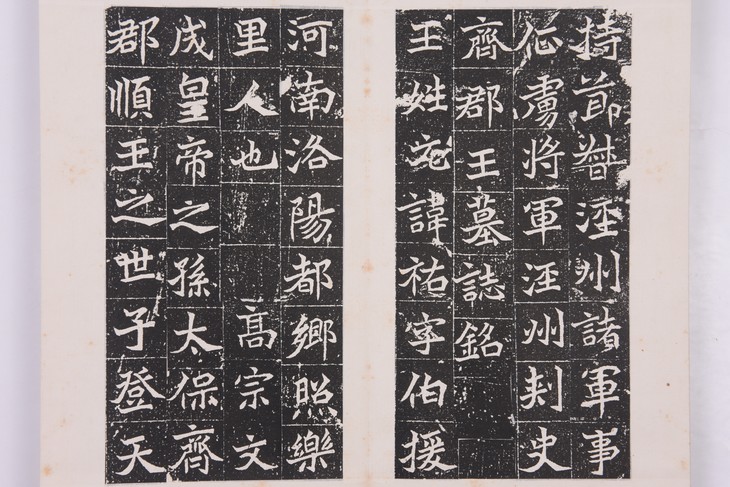 持節督涇州諸軍事
征虜將軍涇州刺史
齊郡王墓誌銘
王姓元諱祐字伯援
河南洛陽都鄉照樂
里人也 高宗文
成皇帝之孫太保齊
郡順王之世子登天